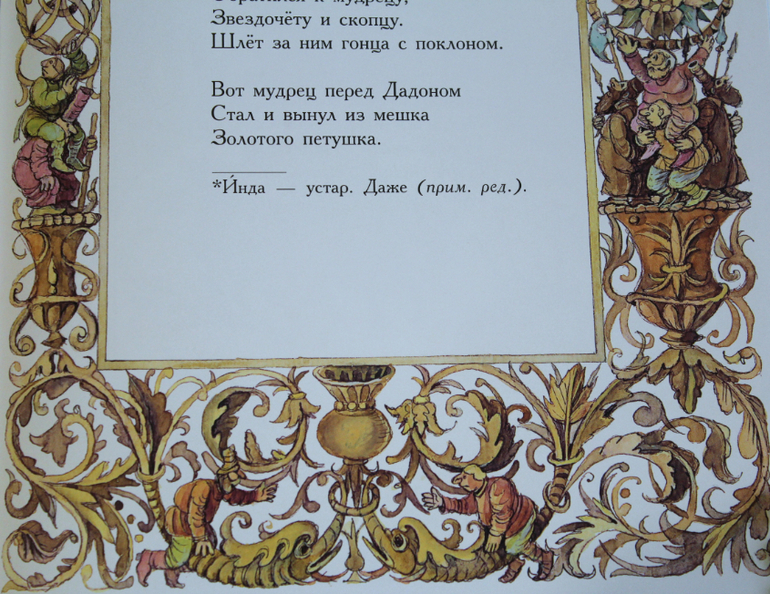 Обратился к мудрецу,
Звездочёту и скопцу.
Шлёт за ним гонца с поклоном.
Вот мудрец перед Дадоном
Стал и вынул из мешка
Золотого петушка.
*И́нда — устар. Даже (прим. ред.).